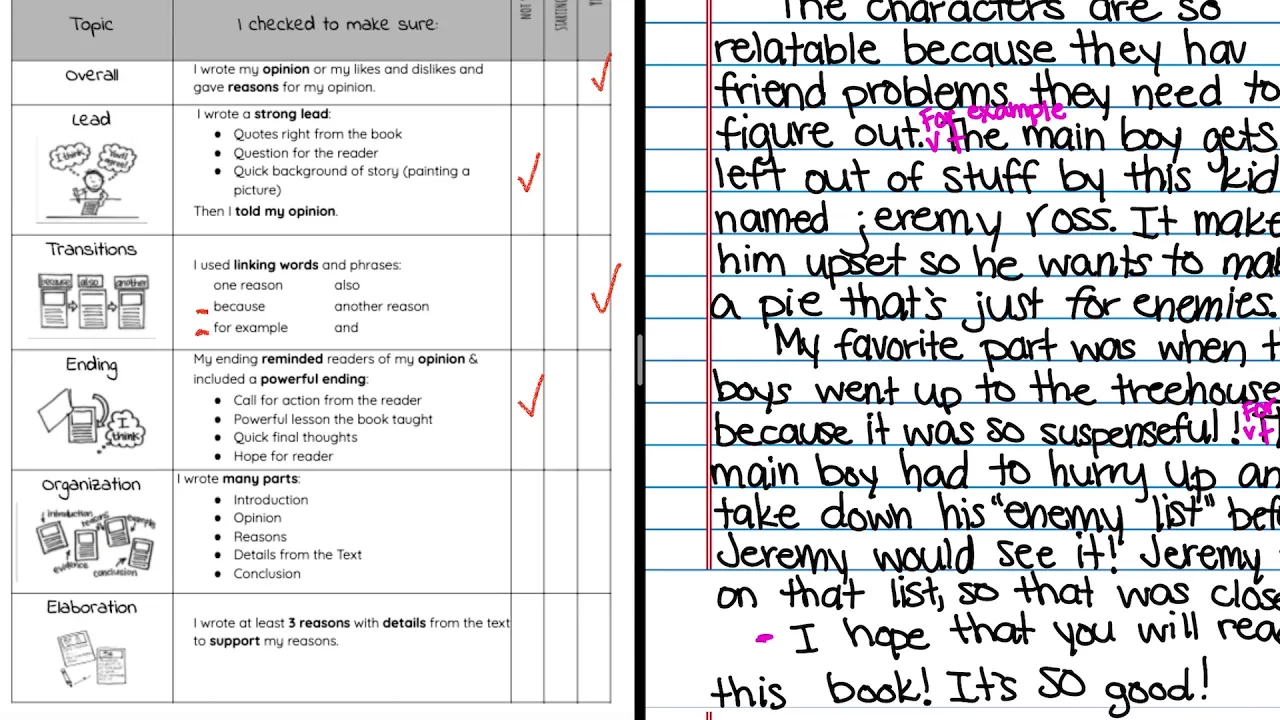 Topic
I checked to make sure:
NOT
STARTING
Y
Overall
I wrote my opinion or my likes and dislikes and
gave reasons for my opinion.
Lead
I think
You'll agree!
I wrote a strong lead:
• Quotes right from the book
• Question for the reader
• Quick background of story (painting a
picture)
Then I told my opinion.
Transitions
because
also
another
I used linking words and phrases:
one reason also
because another reason
for example and
Ending
I think
My ending reminded readers of my opinion &
included a powerful ending:
• Call for action from the reader
• Powerful lesson the book taught
• Quick final thoughts
• Hope for reader
Organization
introduction
reasons
example
evidence
conclusion
I wrote many parts:
• Introduction
• Opinion
• Reasons
• Details from the Text
• Conclusion
Elaboration
I wrote at least 3 reasons with details from the text
to support my reasons.
The characters are so
relatable because they hav
friend problems they need to
For example
figure out. The main boy gets
left out of stuff by this kid
named jeremy ross. It make
him upset so he wants to mak
a pie that's just for enemies.
My favorite part was when t
boys went up to the treehouse
For
because it was so suspenseful! T
main boy had to hurry up an
take down his "enemy list" befo
Jeremy would see it! Jeremy
on that list, so that was close
- I hope that you will rea
this book! It's SO good!